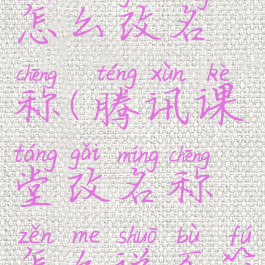 怎么改名
chēng téng xùn kè
称(腾讯课
táng gǎi míng chēng
堂改名称
zěn me shuō bù fú